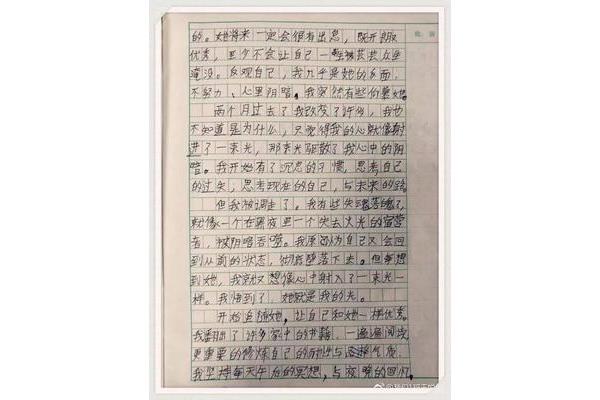 的。她将来一定会很有出息，既开朗
优秀，至少不会让自己一生被芸芸众生
淹没。反观自己，我几乎是她的反面，
不努力、心里阴暗。我突然有些仰慕她。
两个月过去了我改变了许多，我也
不知道是为什么，只觉得我的心就像射
进了一束光，那束光驱散了我心中的阴
暗。我开始有了沉思的习惯，思考自己
的过失，思考现在的自己，与未来的路。
但我被调走了。我有些失魂落魄了，
就像一个在黑夜里一个失去火光的宿营
者，被阴暗吞噬。我原以为自己又会回
到从前的状态，彻底堕落下去。但每想
到她，我就又想像心中射入了一束光一
样。我悟到了，她就是我的光。
开始追随她，让自己和她一样优秀。
我翻出了许多家中的书籍，一遍遍阅读，
更重要的修炼自己的耐性与
我坚持每天午后的冥想，与夜晚的回忆，